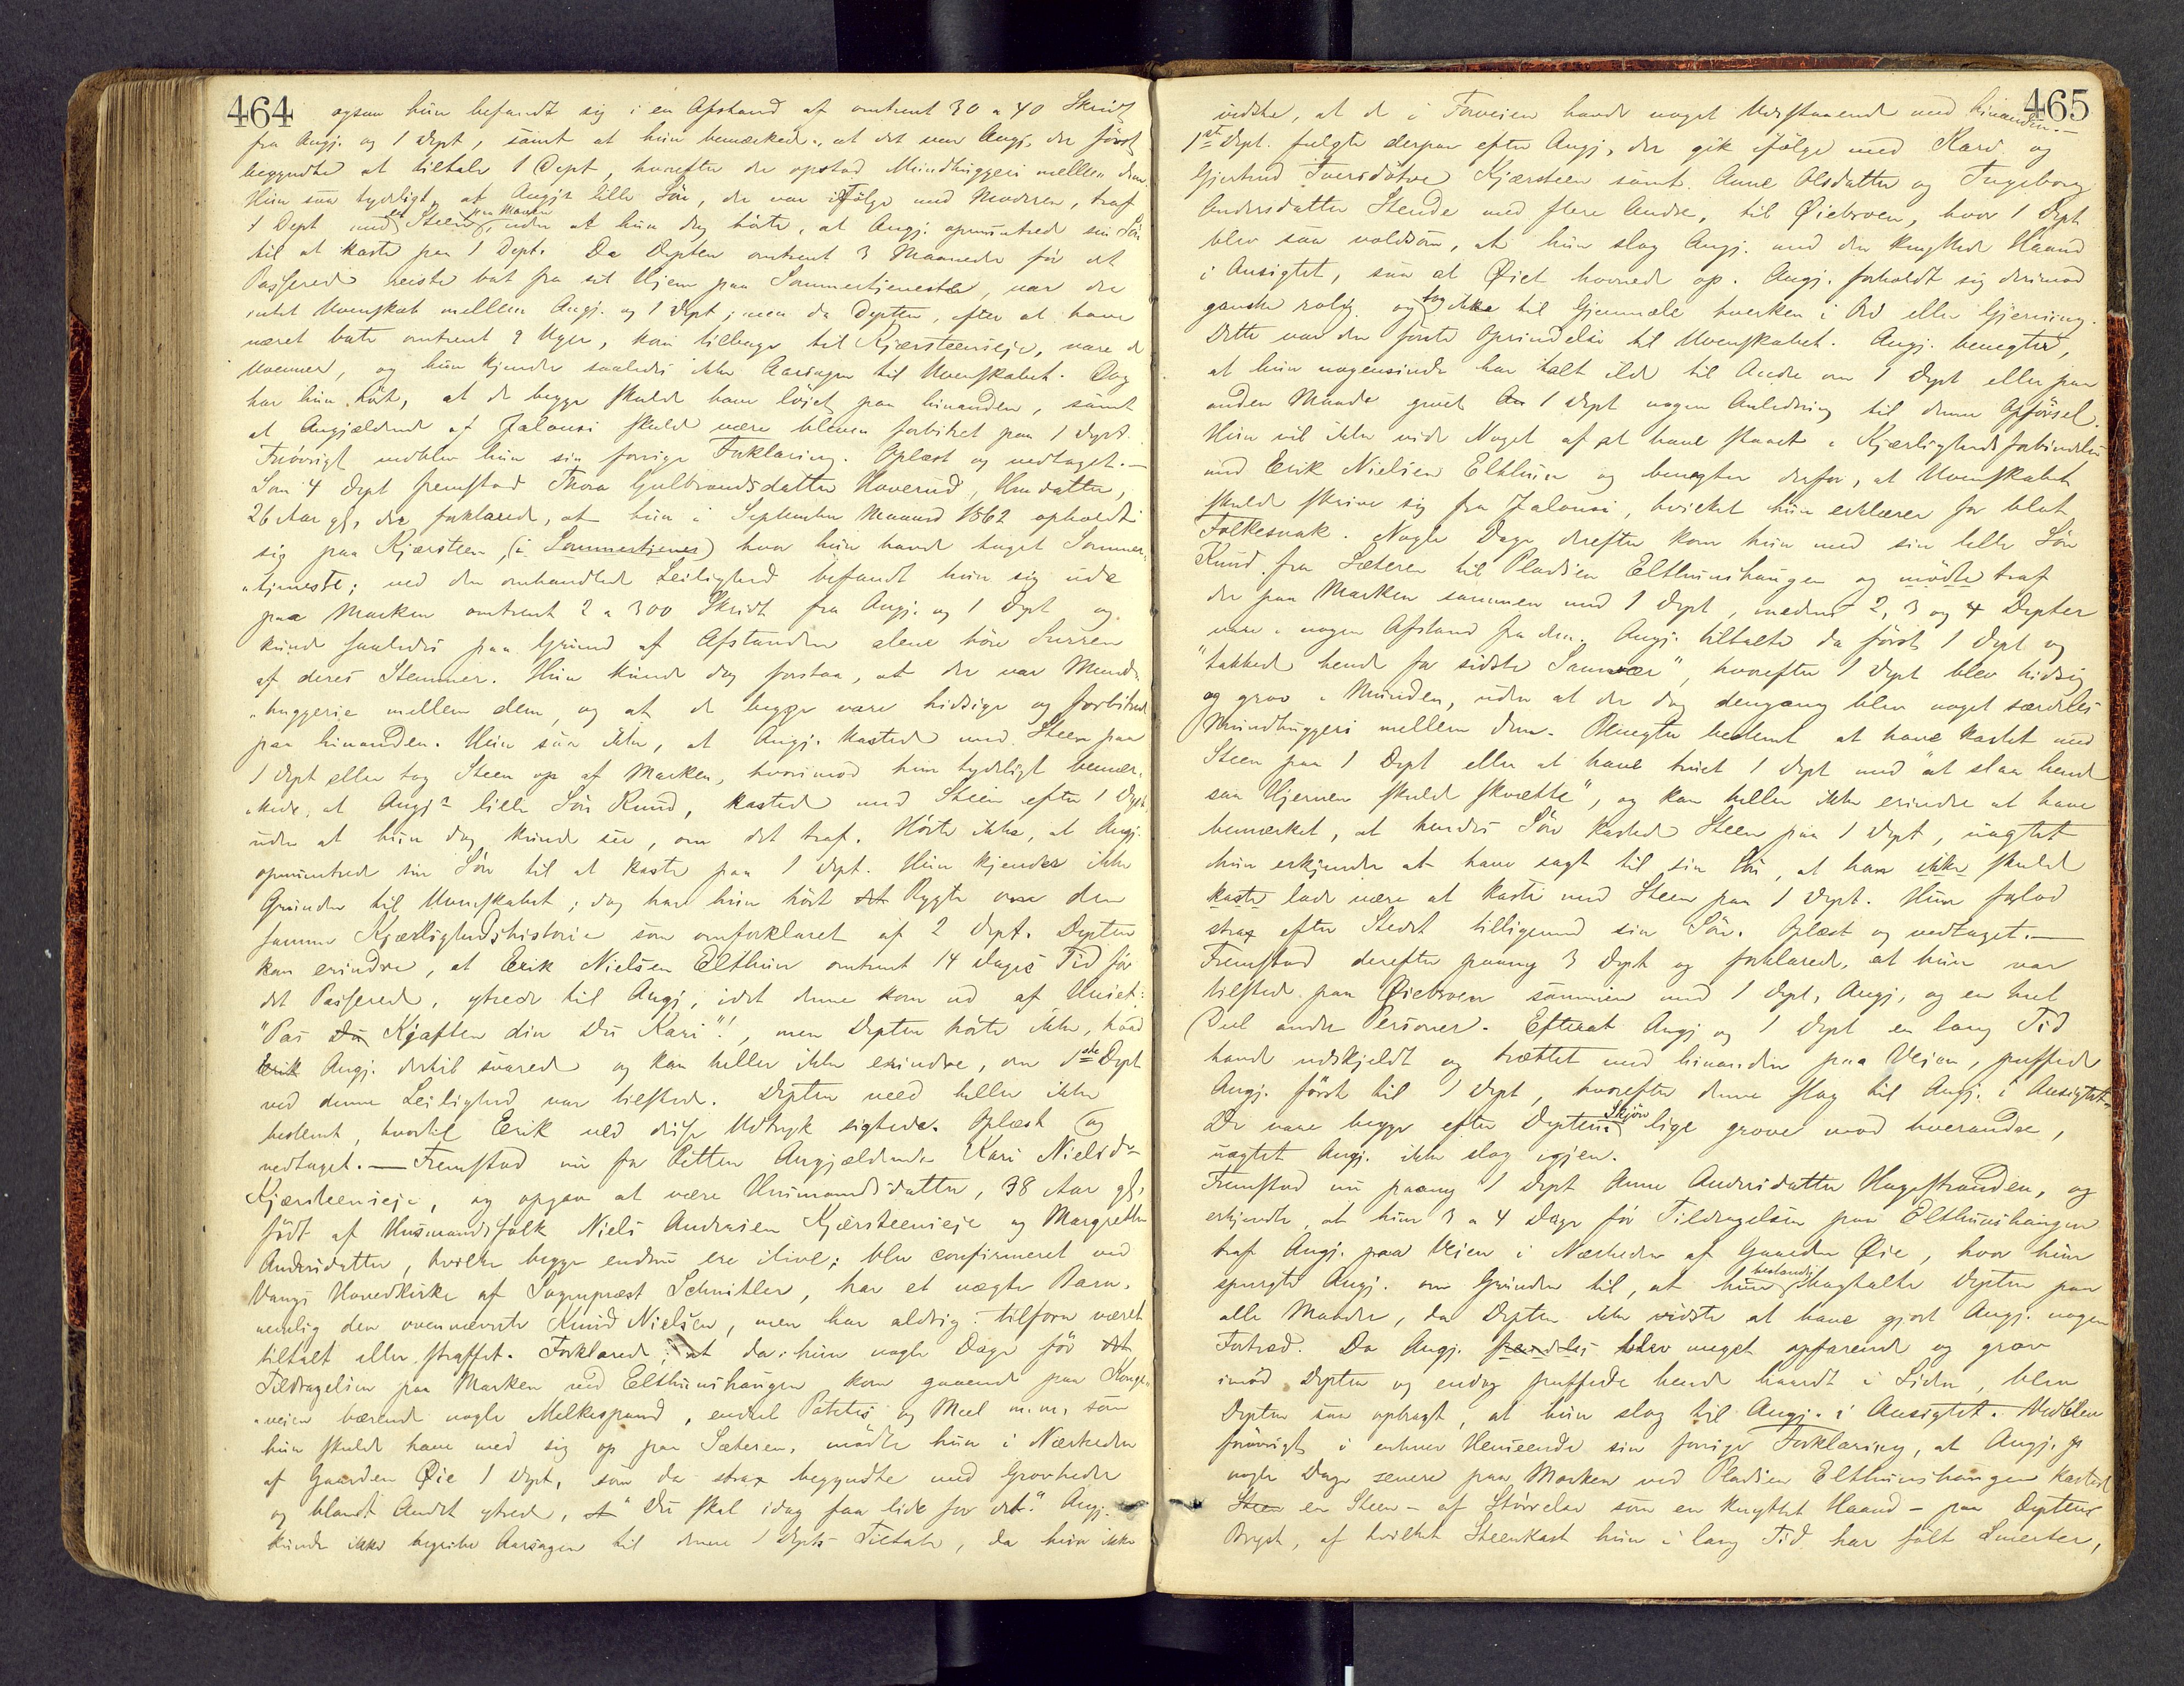 464
ogsaa hun befandt sig i en Afstand af omtrent 30 a 40 Skridt
fra Angj. og 1 Dept, samt at hun bemærkede, at det var Angj. der först
begyndte at tiltale 1 Dept, hvorefter der opstod Mundhuggeri mellem dem.
Hun saa tydeligt, at Angj:s lille Sön, der var ifölge med Moderen, traf
1 Dept med en Steen paa Marken, uden at hun dog hörte, at Angj. opmuntrede sin Sön
til at kaste paa 1 Dept. Da Depten omtrent 3 Maaneder för det
Passerede reiste bort fra sit Hjem paa Sommertjeneste, var der
intet Uvenskab mellem Angj. og 1 Dept; men da Depten, efter at have
været borte omtrent 9 Uger, kom tilbage til Kjærsteenseje, vare de
Uvenner, og hun kjender saaledes ikke Aarsagen til Uvenskabet. Dog
har hun hört, at de begge skulde have löiet paa hinanden, samt
at Angjældende af Jalousi skulde være bleven forbittret paa 1 Dept.
Iövrigt vedblev hun sin forrige Forklaring. Oplæst og vedtaget.—
Som 4 Dept fremstod Thora Gulbrandsdatter Haverud, Huusdatter,
26 Aar gl, der forklarede, at hun i September Maaned 1862 opholdt
sig paa Kjærsteen, (i Sommertjenes) hvor hun havde taget Sommer-
-tjeneste; ved den omhandlede Leilighed befandt hun sig ude
paa Marken omtrent 2 a 300 Skridt fra Angj. og 1 Dept og
kunde saaledes paa Grund af Afstanden alene höre Surren
af deres Stemmer. Hun kunde dog forstaa, at der var Mund-
-huggerie mellem dem, og at de begge vare hidsige og forbittrede
paa hinanden. Hun saa ikke, at Angj. kastede med Steen paa
1 Dept eller tog Steen op af Marken, hvorimod hun tydeligt bemær-
-kede, at Angj:s lille Sön Knud, kastede med Steen efter 1 Dept,
uden at hun dog kunde see, om det traf. Hörte ikke, at Angj.
opmuntrede sin Sön til at kaste paa 1 Dept. Hun kjender ikke
Grunden til Uvenskabet; dog har hun hört det Rygte om den
samme Kjærlighedshistorie som omforklaret af 2 Dept. Depten
kan erindre, at Erik Nielsen Elthun omtrent 14 Dages Tid för
det Passerede, ytrede til Angj., idet denne kom ud af Huset:
"Pas Du Kjæften din Du Kari"!, men Depten hörte ikke, hvad
Erik Angj. dertil svarede og kan heller ikke erindre, om 1ste Dept
ved denne Leilighed var tilstede. Depten veed heller ikke
bestemt, hvortil Erik ved disse Udtryk sigtede. Oplæst og
vedtaget. — Fremstod nu for Retten Angjældende Kari Nielsd:r
Kjærsteenseje, og opgav at være Huusmandsdatter, 38 Aar gl,
födt af Husmandsfolk Niels Andersen Kjærsteenseje og Margrethe
Andersdatter, hvilke begge endnu ere ilive; blev confirmeret ved
Vangs Hovedkirke af Sognepræst Schnitler, har et uægte Barn,
nemlig den ovennævnte Knud Nielsen, men har aldrig tilforn været
tiltalt eller straffet. Forklarede, at da hun nogle Dage för det
Tildragelsen paa Marken ved Elthunshaugen kom gaaende paa Konge-
-veien bærende nogle Melkespand, endeel Potetes og Meel m.m. som
hun skulde have med sig op paa Sæteren, mödte hun i Nærheden
af Gaarden Øie 1 Dept, som da strax begyndte med Grovheder
og blandt Andet ytrede, at "Du skal idag faa lide for det." Angj.
kunde ikke begribe Aarsagen til denne 1 Depts Tiltale, da hun ikke
465
vidste, at de i Forveien havde noget Udestaaende med hinanden.—
1ste Dept. fulgte derpaa efter Angj., der gik ifölge med Kari og
Gjertrud Iversdötre Kjærsteen samt Anne Olsdatter og Ingeborg
Andersdatter Stende med flere Andre, til Øiebroen, hvor 1 Dept
blev saa voldsom, at hun slog Angj. med den knyttede Haand
i Ansigtet, saa at Øiet hovnede op. Angj. forholdt sig derimod
ganske rolig og tog ikke til Gjenmæle hverken i Ord eller Gjerning.
Dette var den förste Oprindelse til Uvenskabet. Angj. benegter,
at hun nogensinde har talt ilde til Andre om 1 Dept eller paa
anden Maade givet 1 Dept nogen Anledning til denne Opförsel.
Hun vil ikke vide Noget af at have staaet i Kjærlighedsforbindelse
med Erik Nielsen Elthun og benegter derfor, at Uvenskabet
skulde skrive sig fra Jalousi, hvilket hun erklærer for blot
Folkesnak. Nogle Dage derefter kom hun med sin lille Sön
Knud fra Sæteren til Pladsen Elthunshaugen og mödte traf
der paa Marken sammen med 1 Dept, medens 2, 3 og 4 Depter
vare i nogen Afstand fra dem. Angj. tiltalte da först 1 Dept og
"takkede hende for sidste Samvær", hvorefter 1 Dept blev hidsig
og grov i Munden, uden at der dog dengang blev noget særdeles
Mundhuggeri mellem dem. Benegter bestemt at have kastet med
Steen paa 1 Dept eller at have truet 1 Dept med "at slaa hende
saa Hjernen skulde skvætte", og kan heller ikke erindre at have
bemærket, at hendes Sön kastede Steen paa 1 Dept, uagtet
hun erkjender at have sagt til sin Sön, at han ikke skulde
kaste lade være at kaste med Steen paa 1 Dept. Hun forlod
strax efter Stedet tilligemed sin Sön. Oplæst og vedtaget.—
Fremstod derefter paany 3 Dept og forklarede, at hun var
tilstede paa Øiebroen sammen med 1 Dept, Angj, og en heel
Deel andre Personer. Efterat Angj og 1 Dept en lang Tid
havde udskjeldt og trættet med hinanden paa Veien, puffede
Angj. först til 1 Dept, hvorefter denne slog til Angj. i Ansigtet.
De vare begge efter Deptens Skjön lige grove mod hverandre,
uagtet Angj. ikke slog igjen.
Fremstod nu paany 1 Dept Anne Andersdatter Hagestranden, og
erkjendte, at hun 3 a 4 Dage för Tildragelsen paa Elthunshaugen
traf Angj. paa Veien i Nærheden af Gaarden Øie, hvor hun
spurgte Angj. om Grunden til, at hun bestandig bagtalte Depten paa
alle Maader, da Depten ikke vidste at have gjort Angj. nogen
Fortræd. Da Angj. fremdeles blev meget opfarende og grov
imod Depten og endog puffede hende haardt i Siden, blev
Depten saa opbragt, at hun slog til Angj. i Ansigtet. Vedblev
forövrigt i enhver Henseende sin forrige Forklaring, at Angj.
nogle Dage senere paa Marken ved Pladsen Elthunshaugen kastede
Steen en Steen – af Störrelse som en knyttet Haand – paa Deptens
Bryst, af hvilket Steenkast hun i lang Tid har fölt Smerter,